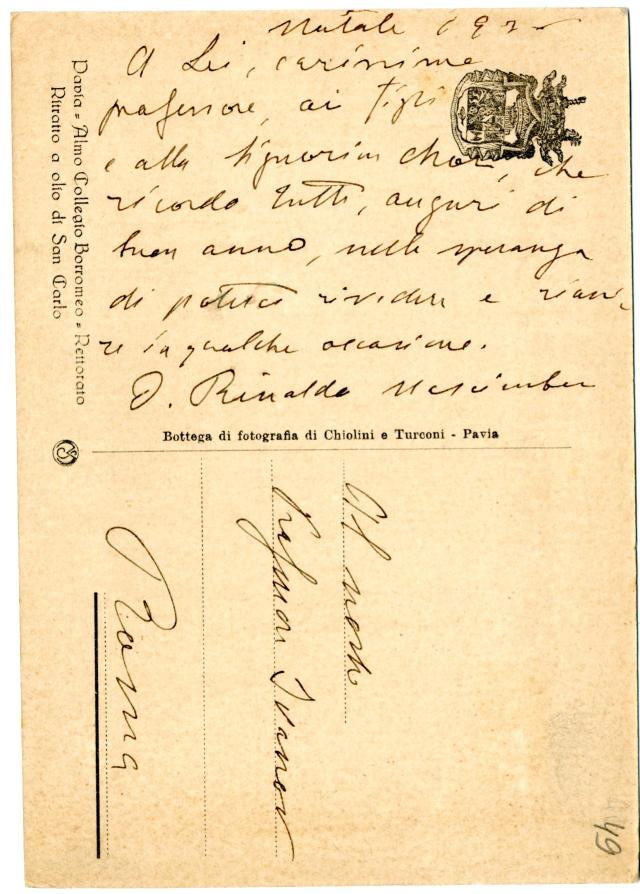 Natale 192
A Lei, carissimo
professore, ai figli
e alla signorina che
ricordo tutti, auguri di
buon anno, nella speranza
di poterci rivedere e
re in qualche occasione.
D. Rinaldo Nascimbene
Pavia = Almo Collegio Borromeo = Rettorato
Ritratto a olio di San Carlo
Bottega di fotografia di Chiolini e Turconi - Pavia
Al
Professor Ivanov
Roma
49